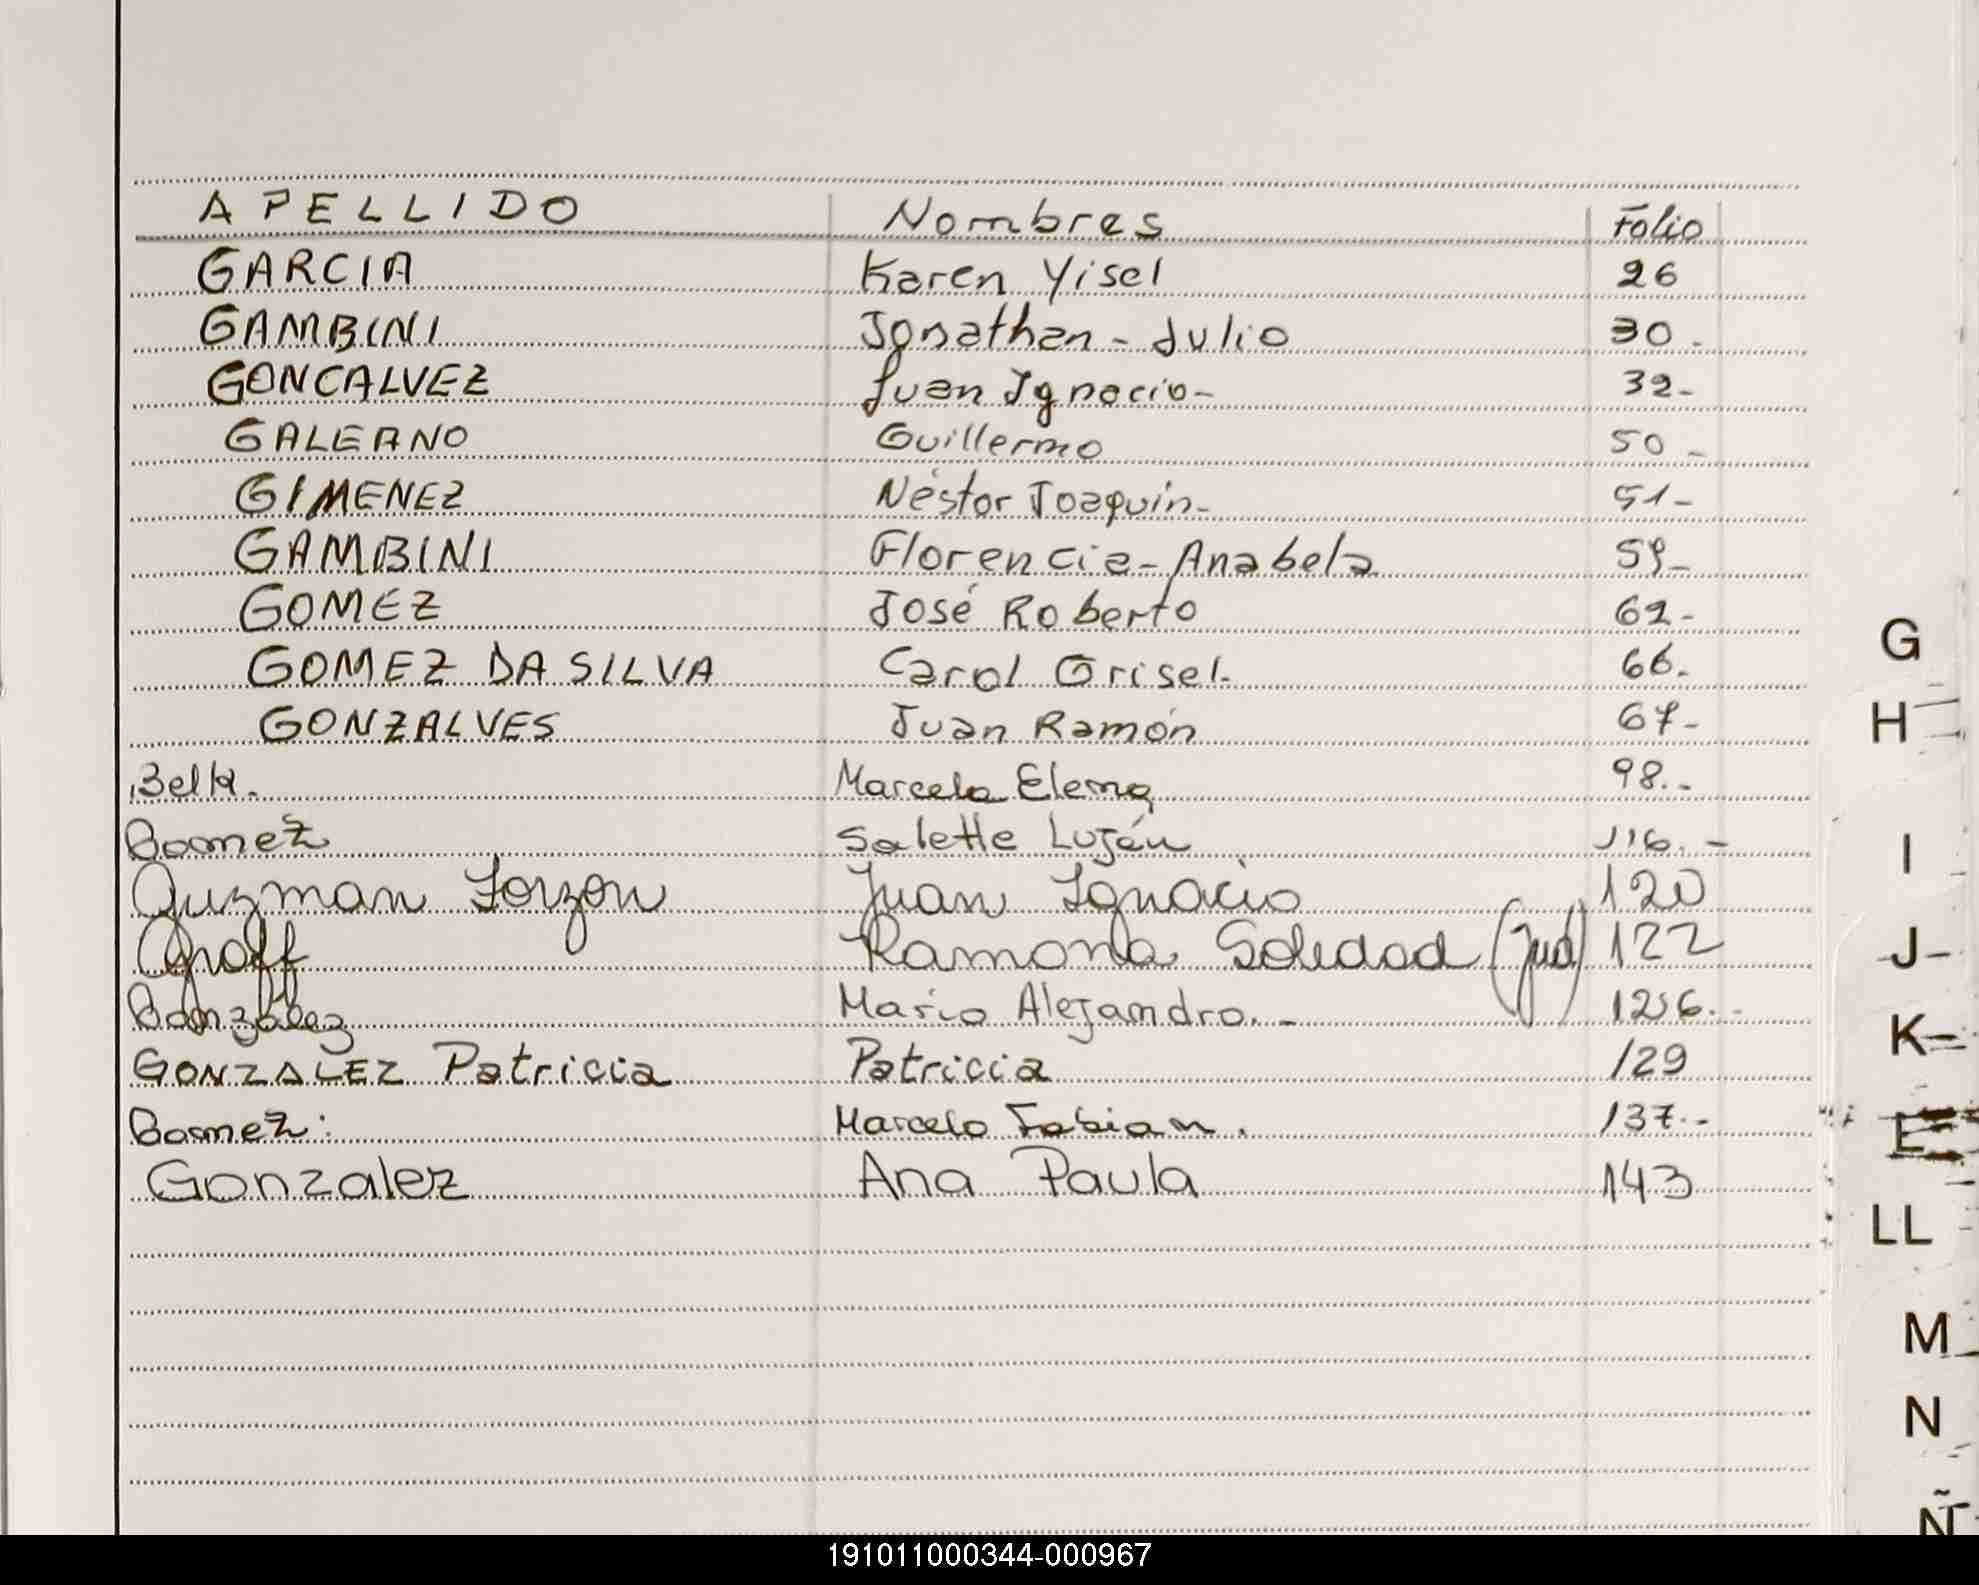 APELLIDO Nombres Folio
GARCIA Karen Yisel 26
GAMBINI Jonathan - Julio 30.
GONCALVEZ Juan Ignacio- 32-
GALEANO Guillermo 50-
GIMENEZ Néstor Joaquín- 51-
GAMBINI Florencia-Anabela 59-
GOMEZ José Roberto 62-
GOMEZ DA SILVA Carol Grisel. 66.
GONZALVES Juan Ramón 67-
Marcela Elena 98.-
Gomez Salette Luján 116.-
Guzman Juan Ignacio 120
Groff Ramona Soledad (jud) 122
González Mario Alejandro.- 126.-
GONZALEZ Patricia Patricia 129
Gomez: Marcelo Fabian. 137.-
Gonzalez Ana Paula 143
G
H
I
J
K
L
LL
M
N
Ñ
191011000344-000967